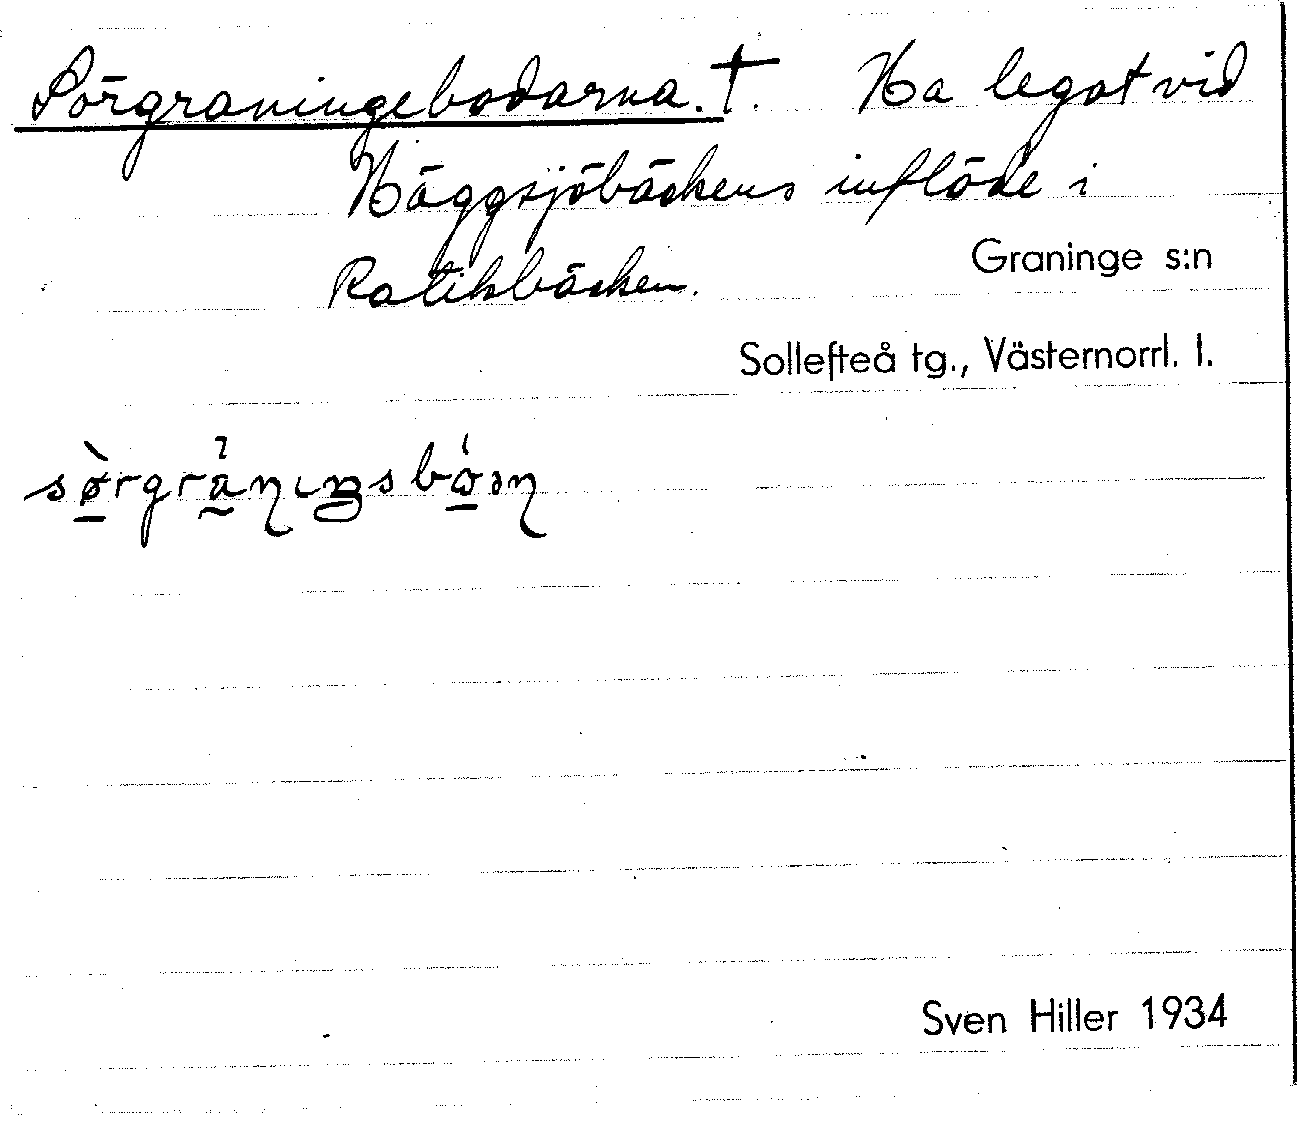 Sörgraningebodarna. †. Ha legat vid
Häggsjöbäckens inflöde i
Rotikbäcken.
Graninge s:n
Sollefteå tg., Västernorrl. l.
Sven Hiller 1934